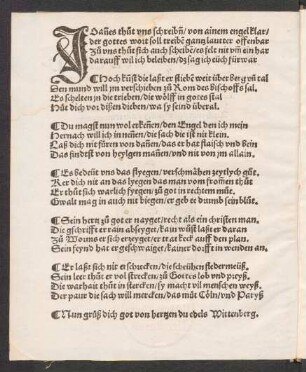 JOañes thůt vns schreibñ/ von ainem engel klar/
der gottes wort soll treibẽ gantz lautter offenbar
Zů vns thůt sich auch scheibẽ/ es felt nit vm̃ ein har
darauff will ich beleiben/ dz sag ich eüch fürwar
¶ Noch künst die laßt er stieben weit über berg vñ tal
Den mund will jm verschieben zů Rom des bischoffs sal.
Es schelten jn die trieben/ die wölff in gottes stal
Hüt dich vor disen dieben/ wa sy seind überal.
¶ Du magst nun wol erkeñen/ den Engel den ich mein
Hernach will ich in neñen/ die sach die ist nit klein.
Laß dich nit füren von dañen/ das er hat flaisch vnd bein
Das findest von heylgen mañen/ vnd nit von jm allain.
¶ Es bedeüt vns das flyegen/ verschmåhen zeytlych gůt.
Ker dich nit an das lyegen/ das man vom fromen thůt
Er thůt sich warlich syegen/ zů got in rechtem můt.
Gwalt mag in auch nit biegen/ er geb ee dumb sein blůt.
¶ Sein hertz zů got er nayget/ recht als ein christen man.
Die gschrifft er rain abseyget/ kain wůst laßt er daran
Zů Worms er sich erzeyget/ er trat keck auff den plan.
Sein feynd hat er geschwaiget/ kainer dorfft in wenden an.
¶ Er laßt sich nit erschrecken/ die scheühen fledermeüß.
Sein leer thůt er vol strecken/ zů Gottes lob vnd preyß.
Die warhait thůt in stercken/ sy macht vil menschen weyß.
Der paur die sach will mercken/ das můt Cöln/ vnd Paryß
¶ Nun grüß dich got von hertzen du edels Wittenberg.